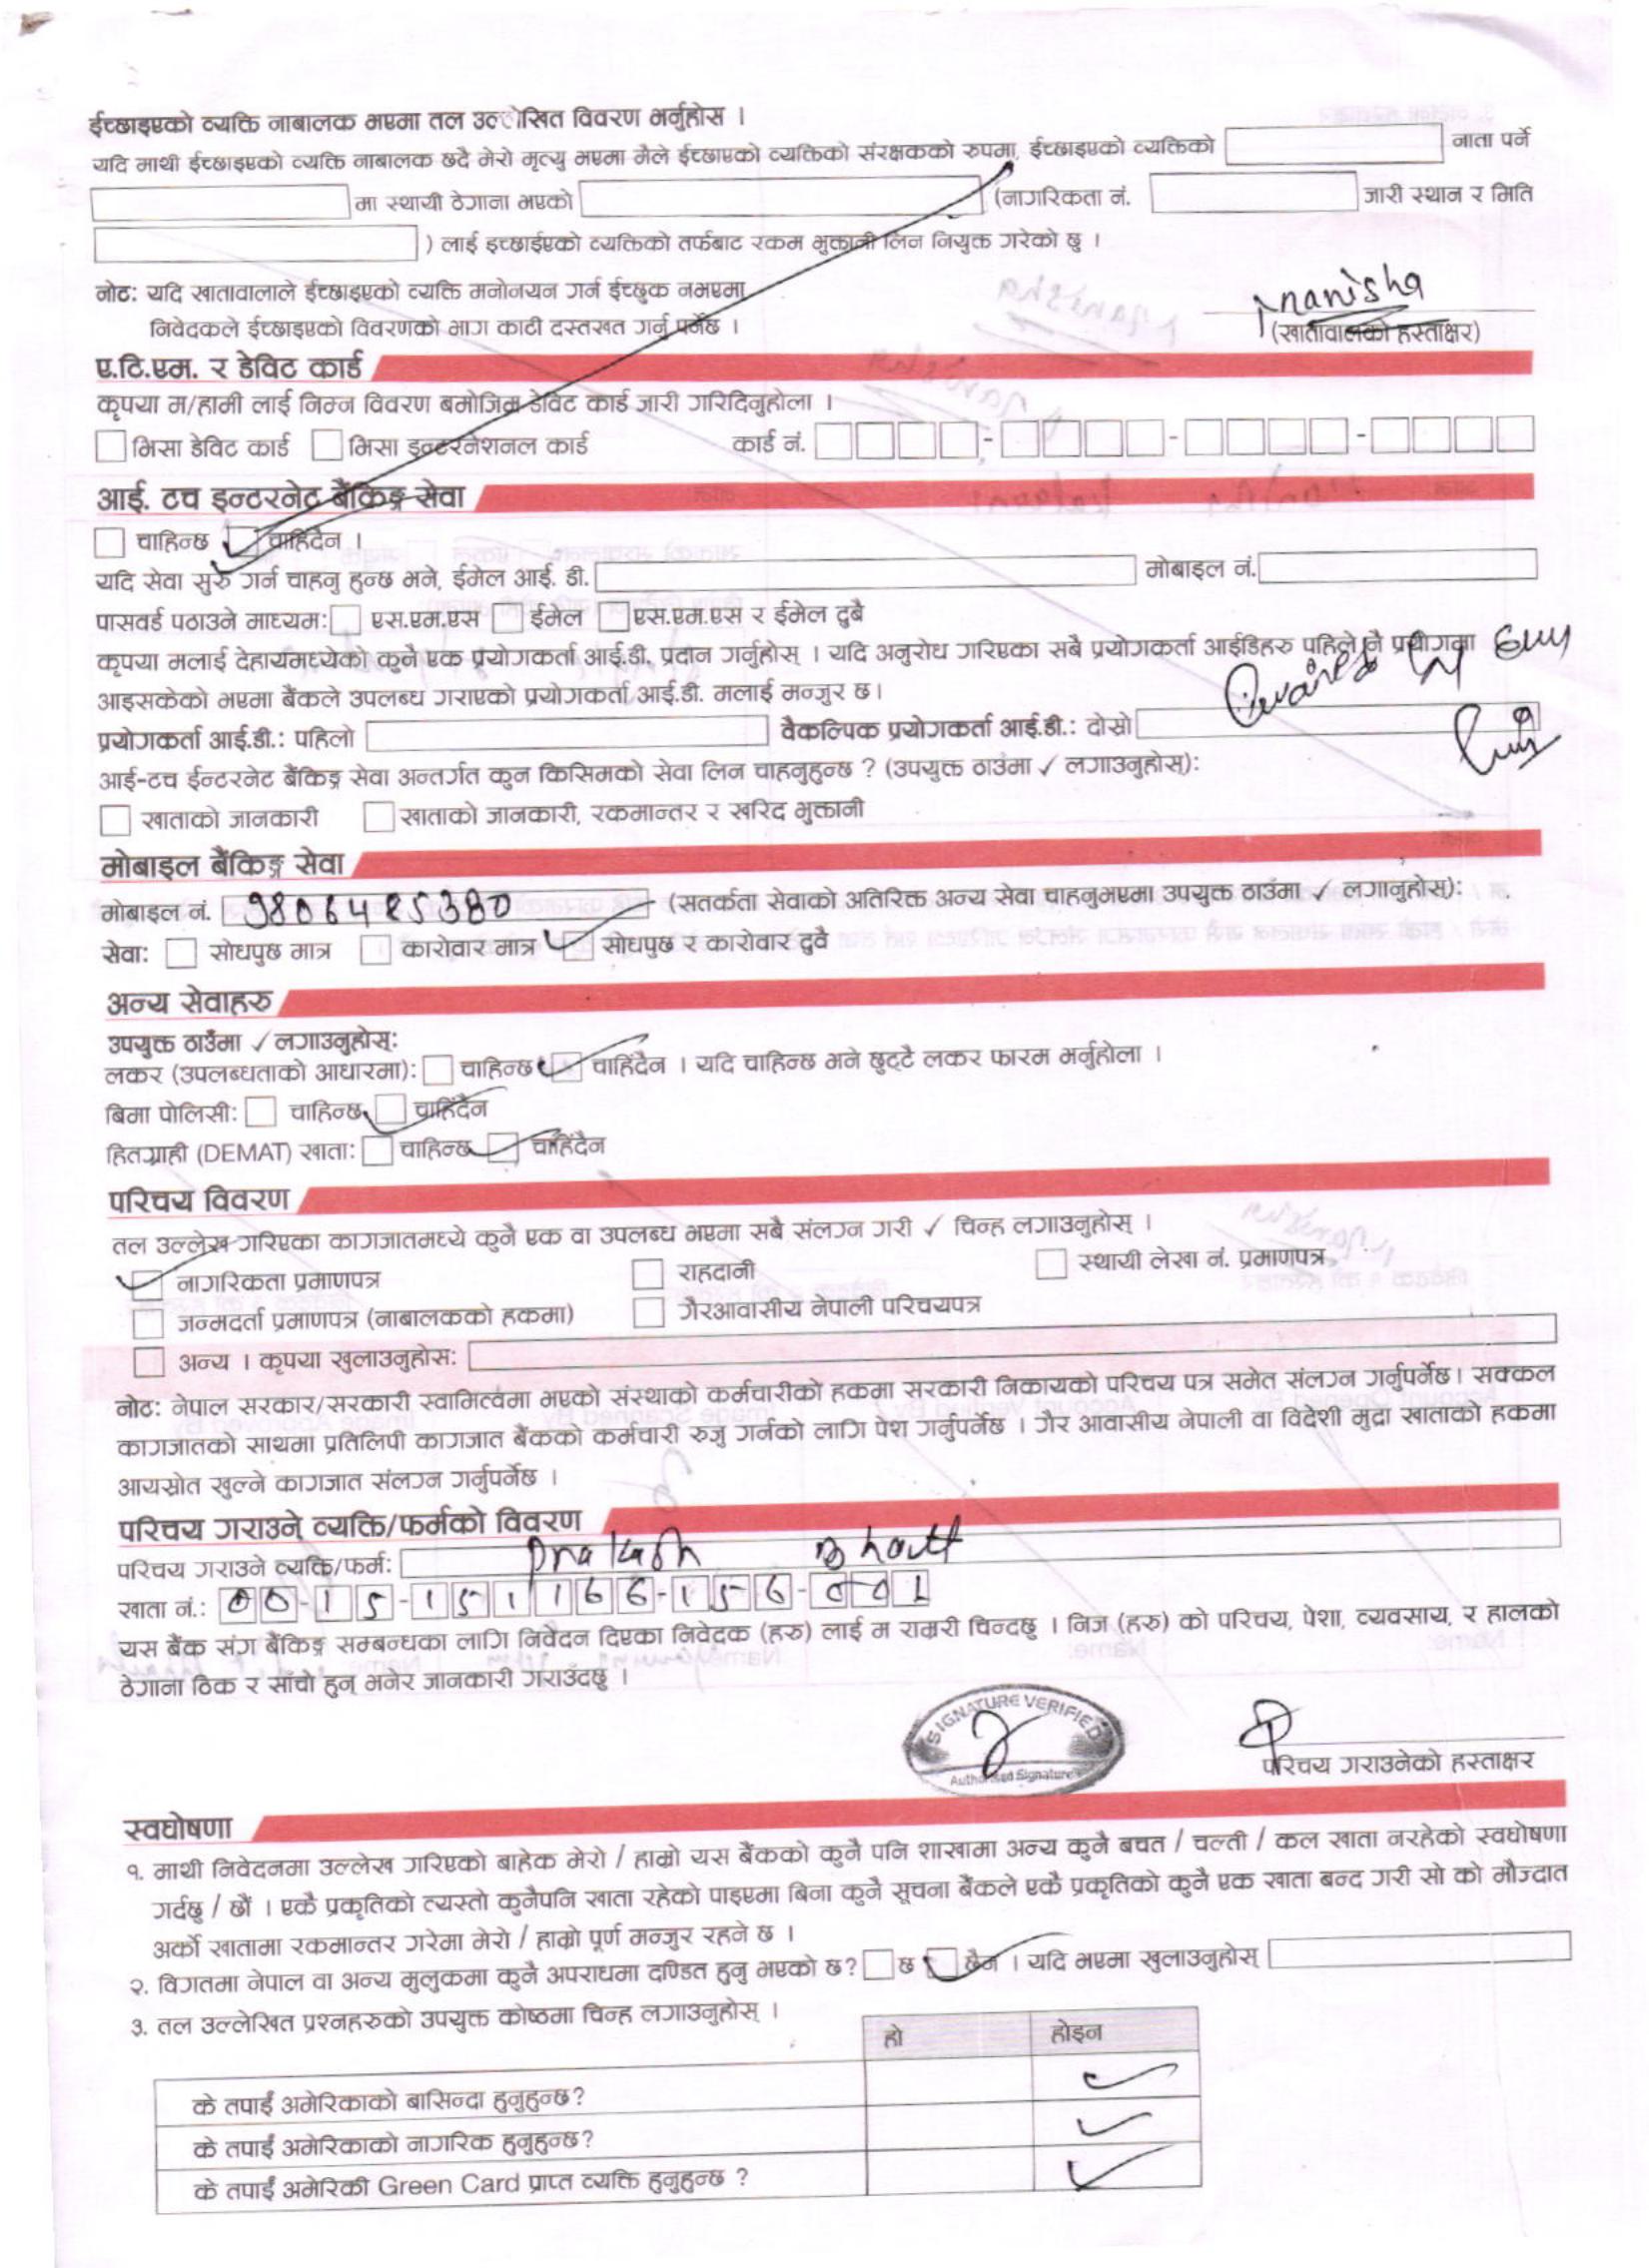 ईच्छाइएको व्यक्ति नाबालक भएमा तल उल्लेखित विवरण भर्नुहोस ।
यदि माथी ईच्छाइएको व्यक्ति नाबालक छदै मेरो मृत्यु भएमा मैले ईच्छाएको व्यक्तिको संरक्षकको रुपमा, ईच्छाइएको व्यक्तिको नाता पर्ने
मा स्थायी ठेगाना भएको (नागरिकता नं. जारी स्थान र मिति
) लाई इच्छाईएको व्यक्तिको तर्फबाट रकम भुक्तानी लिन नियुक्त गरेको छु ।
नोट: यदि खातावालाले ईच्छाइएको व्यक्ति मनोनयन गर्न ईच्छुक नभएमा
निवेदकले ईच्छाइएको विवरणको भाग काटी दस्तखत गर्नु पर्नेछ ।
manisha
(खातावालको हस्ताक्षर)
ए.टि.एम. र डेविट कार्ड
कृपया म/हामी लाई निम्न विवरण बमोजिम डेविट कार्ड जारी गरिदिनुहोला ।
भिसा डेविट कार्ड भिसा इन्टरनेशनल कार्ड कार्ड नं. - - -
आई. टच इन्टरनेट बैंकिङ्ग सेवा
चाहिन्छ चाहिँदैन ।
यदि सेवा सुरु गर्न चाहनु हुन्छ भने, ईमेल आई. डी. मोबाइल नं.
पासवर्ड पठाउने माध्यम: एस.एम.एस ईमेल एस.एम.एस र ईमेल दुबै
कृपया मलाई देहायमध्येको कुनै एक प्रयोगकर्ता आई.डी. प्रदान गर्नुहोस् । यदि अनुरोध गरिएका सबै प्रयोगकर्ता आईडिहरु पहिले नै प्रयोगमा
आइसकेको भएमा बैंकले उपलब्ध गराएको प्रयोगकर्ता आई.डी. मलाई मन्जुर छ।
प्रयोगकर्ता आई.डी.: पहिलो वैकल्पिक प्रयोगकर्ता आई.डी.: दोस्रो
आई-टच ईन्टरनेट बैंकिङ्ग सेवा अन्तर्गत कुन किसिमको सेवा लिन चाहनुहुन्छ ? (उपयुक्त ठाउँमा ✓ लगाउनुहोस्):
खाताको जानकारी खाताको जानकारी, रकमान्तर र खरिद भुक्तानी
मोबाइल बैंकिङ्ग सेवा
मोबाइल नं. 9806485380 (सतर्कता सेवाको अतिरिक्त अन्य सेवा चाहनुभएमा उपयुक्त ठाउँमा ✓ लगानुहोस्):
सेवा: सोधपुछ मात्र कारोवार मात्र सोधपुछ र कारोवार दुवै
अन्य सेवाहरु
उपयुक्त ठाउँमा ✓ लगाउनुहोस्:
लकर (उपलब्धताको आधारमा): चाहिन्छ चाहिँदैन । यदि चाहिन्छ भने छुट्टै लकर फारम भर्नुहोला ।
बिमा पोलिसी: चाहिन्छ चाहिँदैन
हितग्राही (DEMAT) खाता: चाहिन्छ चाहिँदैन
परिचय विवरण
तल उल्लेख गरिएका कागजातमध्ये कुनै एक वा उपलब्ध भएमा सबै संलग्न गरी ✓ चिन्ह लगाउनुहोस् ।
नागरिकता प्रमाणपत्र राहदानी स्थायी लेखा नं. प्रमाणपत्र
जन्मदर्ता प्रमाणपत्र (नाबालकको हकमा) गैरआवासीय नेपाली परिचयपत्र
अन्य । कृपया खुलाउनुहोस:
नोट: नेपाल सरकार/सरकारी स्वामित्वमा भएको संस्थाको कर्मचारीको हकमा सरकारी निकायको परिचय पत्र समेत संलग्न गर्नुपर्नेछ। सक्कल
कागजातको साथमा प्रतिलिपी कागजात बैंकको कर्मचारी रुजु गर्नको लागि पेश गर्नुपर्नेछ । गैर आवासीय नेपाली वा विदेशी मुद्रा खाताको हकमा
आयस्रोत खुल्ने कागजात संलग्न गर्नुपर्नेछ ।
परिचय गराउने व्यक्ति/फर्मको विवरण
परिचय गराउने व्यक्ति/फर्म: Prakash Bhatt
खाता नं.: 00-15-151166-156-001
यस बैंक संग बैंकिङ्ग सम्बन्धका लागि निवेदन दिएका निवेदक (हरु) लाई म राम्ररी चिन्दछु । निज (हरु) को परिचय, पेशा, व्यवसाय, र हालको
ठेगाना ठिक र साँचो हुन् भनेर जानकारी गराउँदछु ।
SIGNATURE VERIFIED
Authorised Signature
परिचय गराउनेको हस्ताक्षर
स्वघोषणा
१. माथी निवेदनमा उल्लेख गरिएको बाहेक मेरो / हाम्रो यस बैंकको कुनै पनि शाखामा अन्य कुनै बचत / चल्ती / कल खाता नरहेको स्वघोषणा
गर्दछु / छौं । एकै प्रकृतिको त्यस्तो कुनैपनि खाता रहेको पाइएमा बिना कुनै सूचना बैंकले एकै प्रकृतिको कुनै एक खाता बन्द गरी सो को मौज्दात
अर्को खातामा रकमान्तर गरेमा मेरो / हाम्रो पूर्ण मन्जुर रहने छ ।
२. विगतमा नेपाल वा अन्य मुलुकमा कुनै अपराधमा दण्डित हुनु भएको छ? छ छैन । यदि भएमा खुलाउनुहोस्
३. तल उल्लेखित प्रश्नहरुको उपयुक्त कोष्ठमा चिन्ह लगाउनुहोस् ।
हो होइन
के तपाईं अमेरिकाको बासिन्दा हुनुहुन्छ?
के तपाईं अमेरिकाको नागरिक हुनुहुन्छ?
के तपाईं अमेरिकी Green Card प्राप्त व्यक्ति हुनुहुन्छ ?